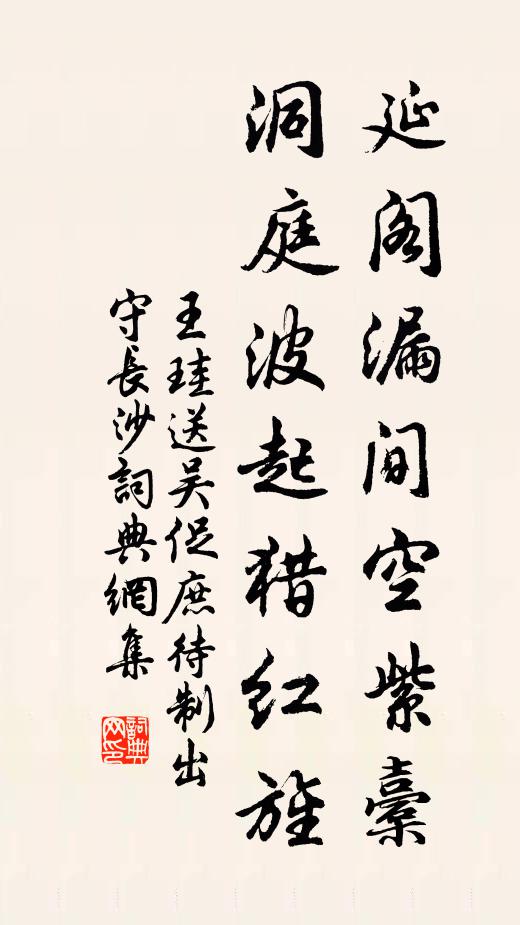 延阁漏间空紫橐
洞庭波起猎红旌
王珪送吴促庶待制出
守長沙詞典網集
詞典
网印